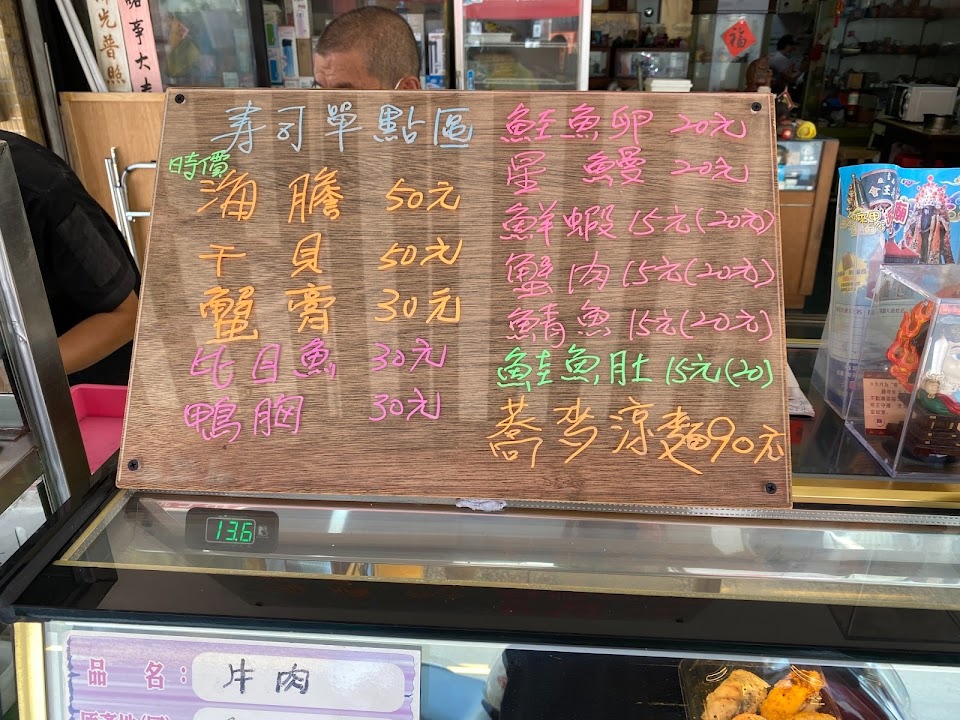 佛光普照
諸事大吉
福
壽司單點區
時價
海膽 50元
干貝 50元
蟹膏 30元
比目魚 30元
鴨胸 30元
鮭魚卵 20元
星鰻 20元
鮮蝦 15元(20元)
蟹肉 15元(20元)
鯖魚 15元(20元)
鮭魚肚 15元(20)
蕎麥涼麵90元
13.6
品名:
牛肉